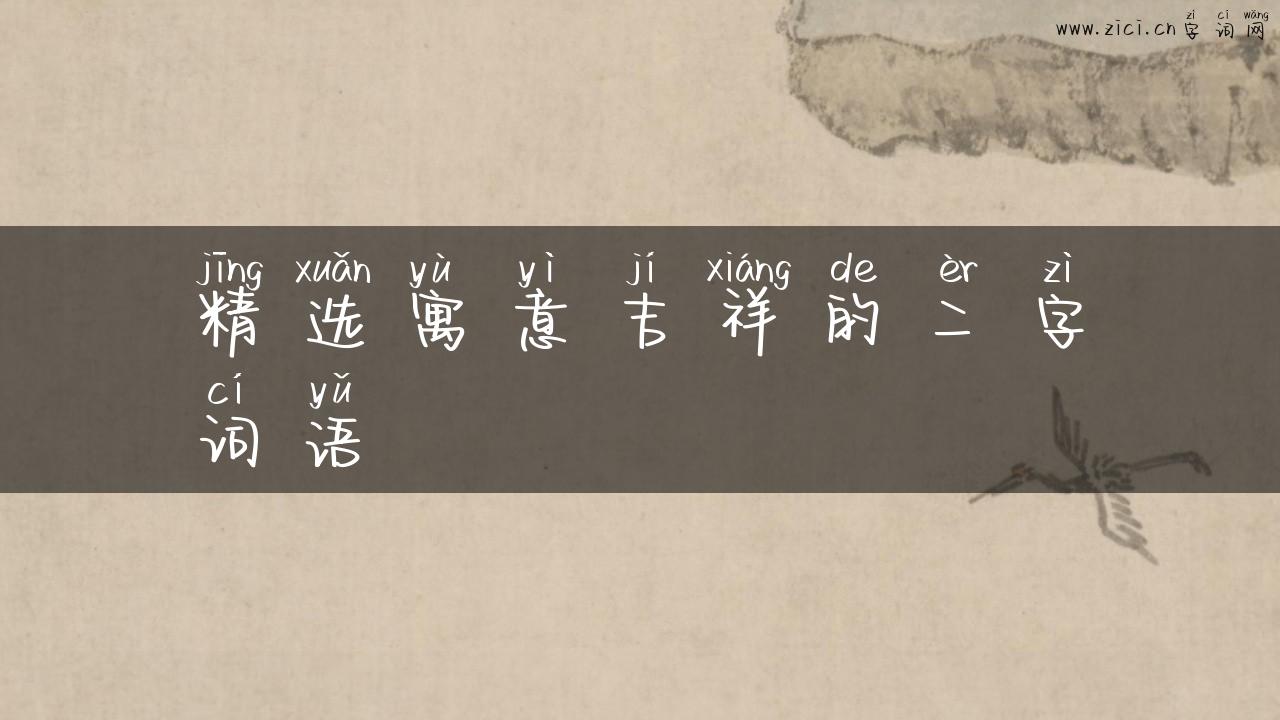 zì cí wǎng
www.zici.cn字词网
jīng xuǎn yù yì jí xiáng de èr zì
精选寓意吉祥的二字
cí yǔ
词语